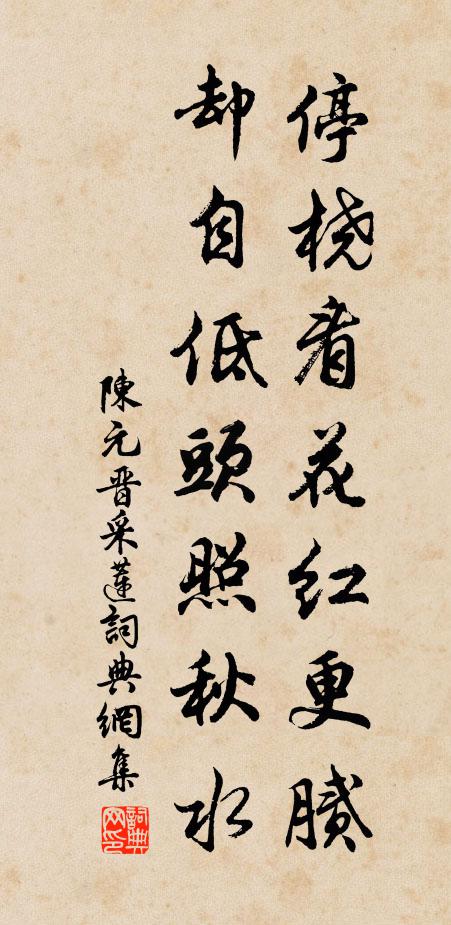 停桡看花红更膩
却自低頭照秋水
陳元晋采蓮詞典網集
詞典
网印